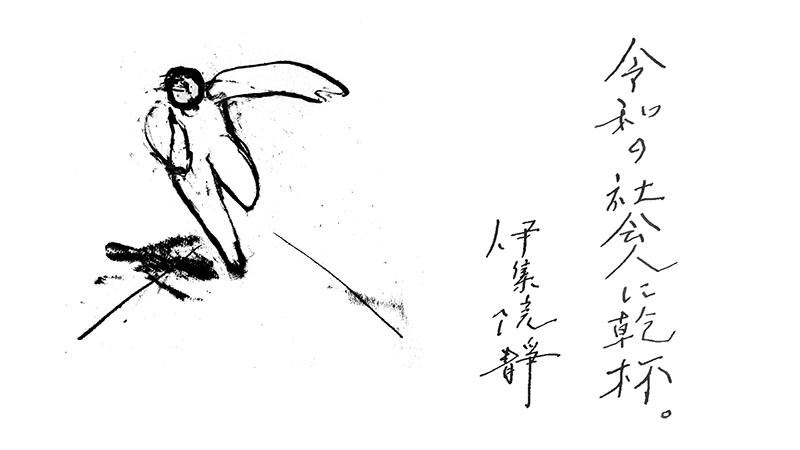 令和の社会人に乾杯。
伊集院静